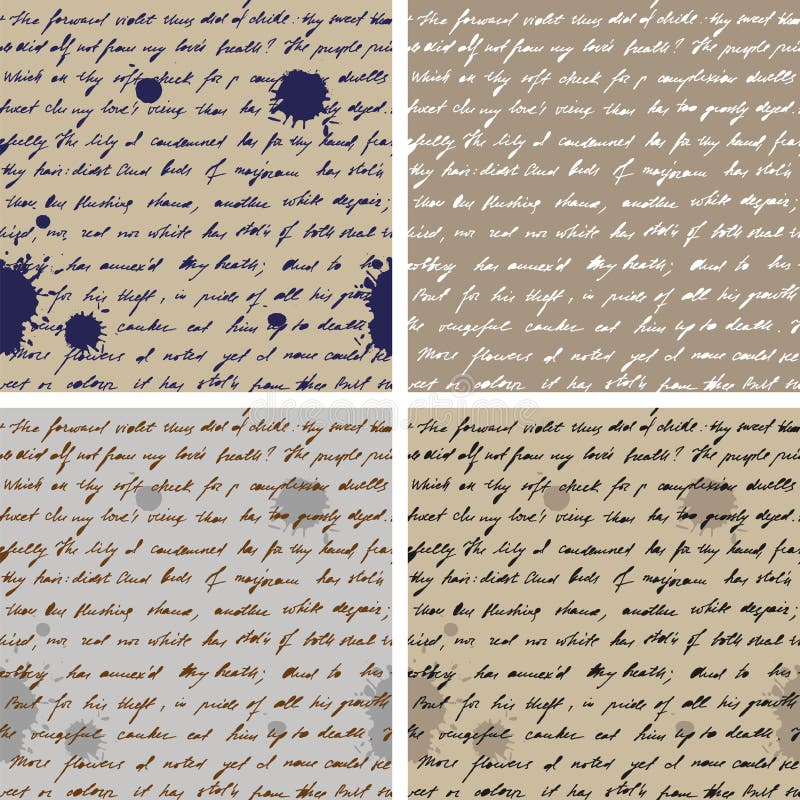 The forward violet thus did I chide: thy sweet
did olf not from my love's breath? The purple
Which on thy soft cheek for complexion dwells
my love's veins thou has too grossly dyed.
The lily I condemned has for thy hand,
thy hair: didst And buds of marjoram has stol'n
thou One flushing shame, another white despair;
nor red nor white has stol'n of both
has annex'd thy breath; And to his
for his theft, in pride of all his
canker eat him up to death.
More flowers I noted yet I none could
or colour it has stol'n from thee But
The forward violet thus did I chide: thy sweet
did olf not from my love's breath? The purple
Which on thy soft cheek for complexion dwells
my love's veins thou has too grossly dyed.
The lily I condemned has for thy hand,
thy hair: didst And buds of marjoram has stol'n
thou One flushing shame, another white despair;
nor red nor white has stol'n of both
has annex'd thy breath; And to his
But for his theft, in pride of all his
the vengeful canker eat him up to death.
More flowers I noted yet I none could
or colour it has stol'n from thee But
The forward violet thus did I chide: thy sweet
did olf not from my love's breath? The purple
Which on thy soft cheek for complexion dwells
my love's veins thou has too grossly dyed.
The lily I condemned has for thy hand,
thy hair: didst And buds of marjoram has stol'n
thou One flushing shame, another white despair;
nor red nor white has stol'n of both
has annex'd thy breath; And to his
But for his theft, in pride of all his
the vengeful canker eat him up to death.
More flowers I noted yet I none could
or colour it has stol'n from thee But
The forward violet thus did I chide: thy sweet
did olf not from my love's breath? The purple
Which on thy soft cheek for complexion dwells
my love's veins thou has too grossly dyed.
The lily I condemned has for thy hand,
thy hair: didst And buds of marjoram has stol'n
thou One flushing shame, another white despair;
nor red nor white has stol'n of both
has annex'd thy breath; And to his
But for his theft, in pride of all his
the vengeful canker eat him up to death.
More flowers I noted yet I none could
or colour it has stol'n from thee But